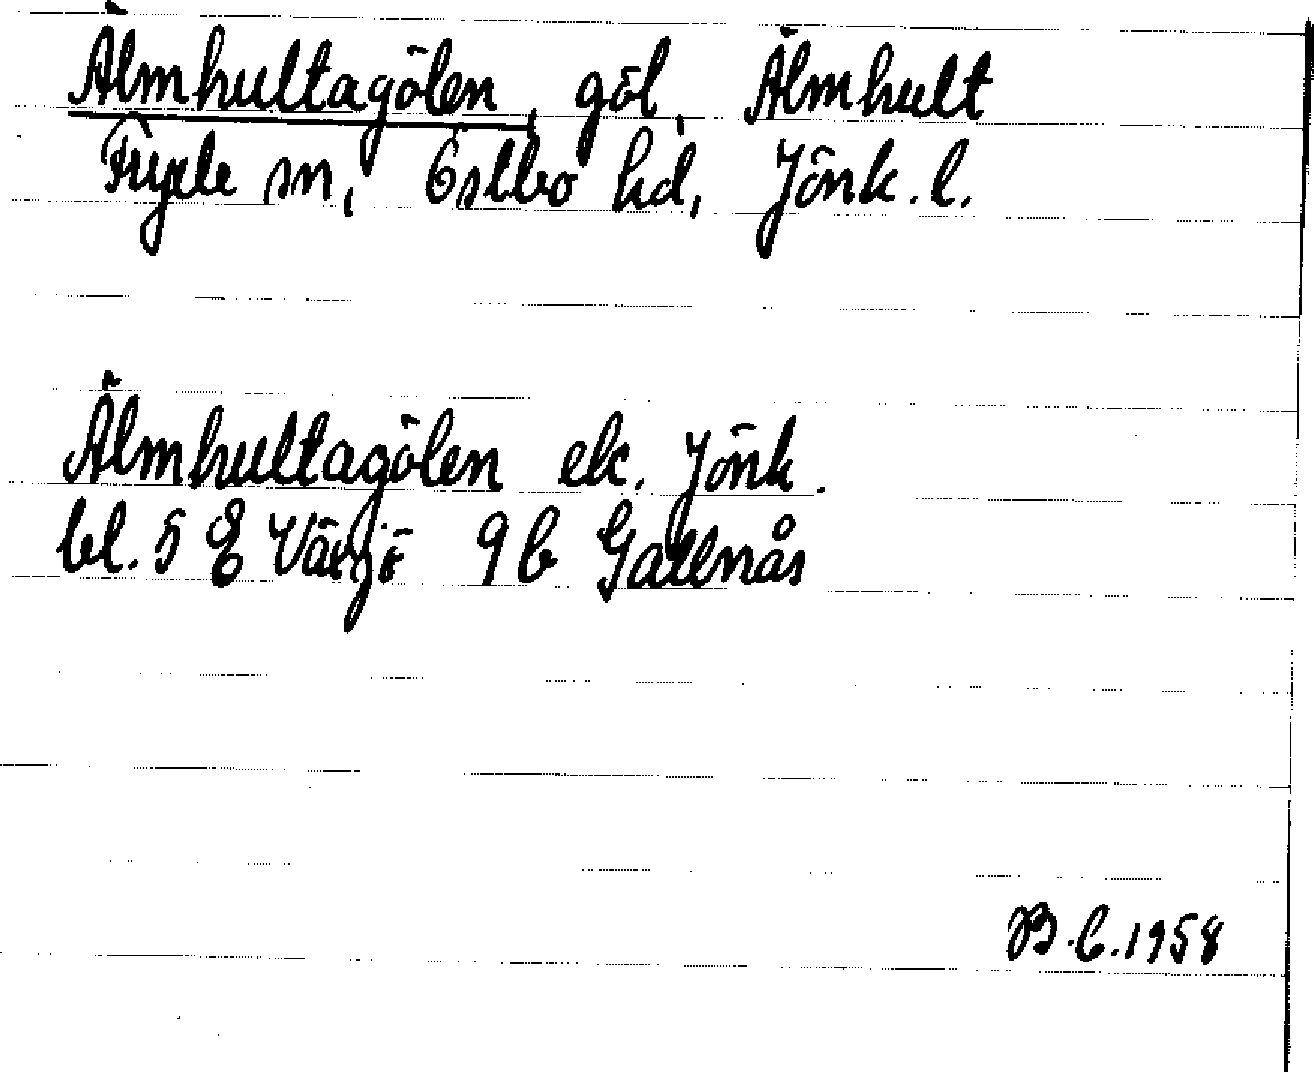 Älmhultagölen, göl, Älmhult
Fryele sn, Östbo hd, Jönk. l.
Älmhultagölen ek. Jönk.
bl. 5 E Växjö 9 b Gällnås
B.b.1958